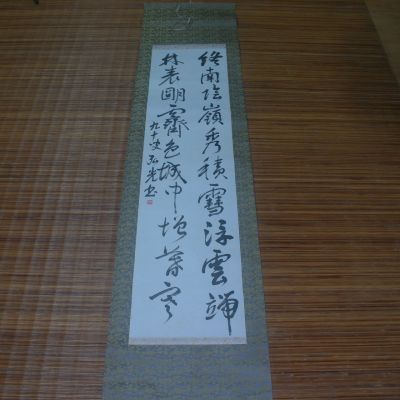 終南陰嶺秀積雪浮雲端
林表明霽色城中增暮寒
九十叟 書